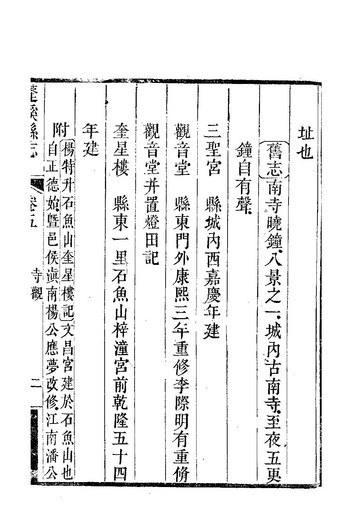 址也
舊志南寺曉鐘八景之一城內古南寺至夜五更
鐘自有聲
三聖宮　縣城內西嘉慶年建
觀音堂　縣東門外康熙三年重修李際明有重脩
觀音堂并置燈田記
奎星樓　縣東一里石魚山梓潼宮前乾隆五十四
年建
附楊特升石魚山奎星樓記文昌宮建於石魚山也
自正德始暨邑侯滇南楊公應夢改修江南潘公
蓬溪縣志
卷五
寺觀
二